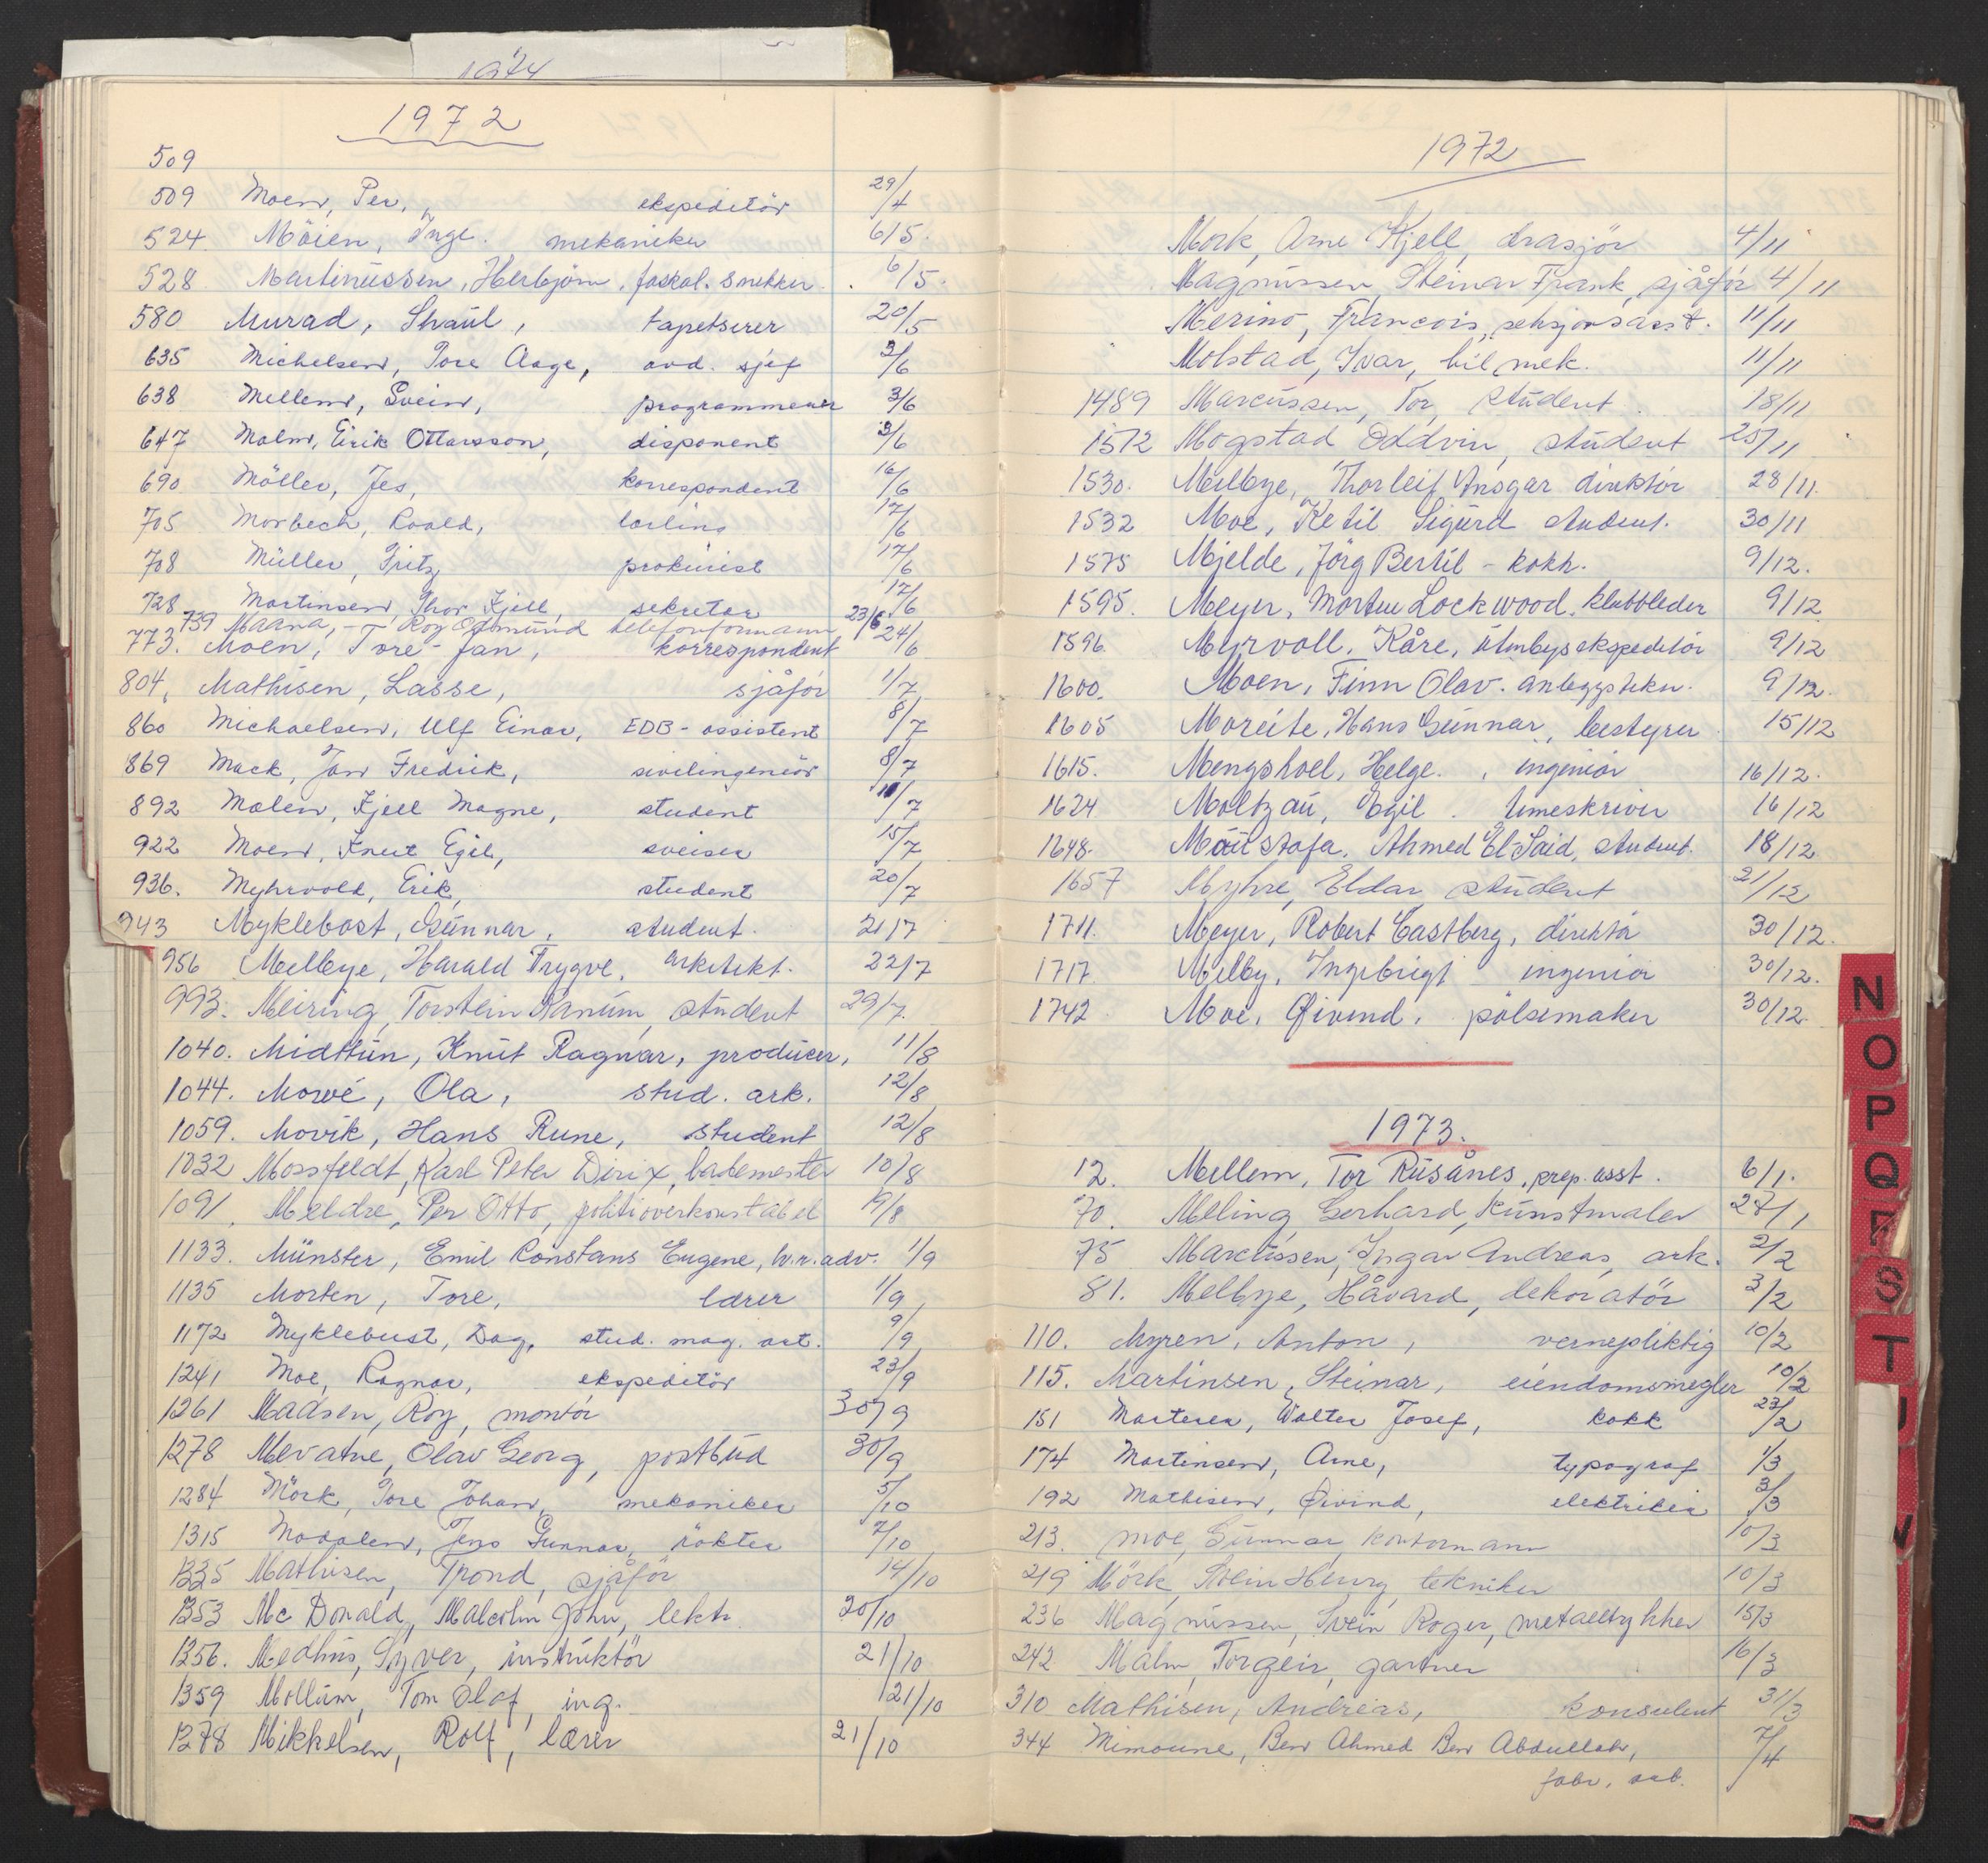 1974
1972
509
509 Moen, Per, ekspeditör 29/4
524. Möien, Inge. mekaniker 6/5.
528 Martinussen, Herbjörn, faskol. snekker. 6/5.
580 Murad, Shaul, tapetserer 20/5
635 Michelsen, Tore Aage, avd. sjef 3/6
638 Mellem, Svein, programmerer 3/6
647 Malm, Eirik Ottarsson, disponent 3/6
690 Möller, Jes, korrespondent 16/6
705 Morbech, Roald, lærling 17/6
708 Müller, Fritz prokurist 17/6
728 Martinsen, Thor Kjell, sekretær 17/6
739 Marna, Roy Osmund telefonformann 23/6
773. Moen, Tore-Jan, korrespondent 24/6
804, Mathisen, Lasse, sjåfør 1/7
860 Michaelsen, Ulf Einar, EDB-assistent 8/7
869 Mack, Jan Fredrik, sivilingeniör 8/7
892 Malen, Kjell Magne, student 11/7
922 Moen, Knut Egil, sveiser 15/7
936. Myhrvold, Erik, student 20/7
943 Myklebost, Gunnar, student. 21/7
956 Melbye, Harald Trygve, arkitekt. 22/7
993. Meiring, Torstein Ranum, student 29/7.
1040. Midttun, Knut Ragnar, producer, 11/8
1044. Mowé, Ola, stud. ark. 12/8
1059. Movik, Hans Rune, student 12/8
1032 Mossfeldt, Karl Peter Dirix, bademester 10/8
1091, Meldre, Per Otto, politioverkonstabel 19/8
1133. Münster, Emil Constans Eugene, h.r.adv. 1/9
1135 Morten, Tore, lærer 1/9
1172 Myklebust, Dag, stud. mag. art. 9/9
1241 Moe, Ragnar, ekspeditör 23/9
1261 Madsen, Roy, montör 30/9
1278 Mevatne, Olav Georg, postbud 30/9
1284 Mörk, Tore Johan, mekaniker 5/10
1315 Modalen, Jens Gunnar, røkter 7/10
1335 Mathisen, Trond, sjåför 14/10
1353 Mc Donald, Malcolm John, lekt. 20/10
1356. Medhus, Syver, instruktör 21/10
1359 Mollum, Tom Olaf, ing. 21/10
1378 Mikkelsen, Rolf, lærer 21/10
1972
Mörk, Arne Kjell, drasjör 4/11
Magnussen, Steinar Frank, sjåför 4/11
Merino, Francois, seksjonsasst. 11/11
Molstad, Ivar, bilmek. 11/11
1489 Marcussen, Tor, student. 18/11
1512 Mogstad Oddvin, student 25/11
1530. Melbye, Thorleif Ansgar direktör 28/11.
1532 Moe, Ketil Sigurd student. 30/11
1575 Mjelde, Jörg Bertil - kokk. 9/12.
1595. Meyer, Morten Lockwood. klubbleder 9/12
1596. Myrvoll, Kåre, utenbys ekspeditör 9/12
1600. Moen, Finn Olav. anleggstekn. 9/12.
1605 Moreite, Hans Gunnar, bestyrer 15/12
1615. Mengshoel, Helge., ingeniör 16/12.
1624 Moltzau, Egil. timeskriver 16/12
1648. Moustafa, Ahmed El-Said, student. 18/12
1657 Myhre, Eldar student 21/12
1711. Meyer, Robert Castberg, direktör 30/12.
1717. Melby, Ingebrigt ingeniör 30/12.
1742 Moe, Øivind, pölsemaker 30/12.
1973.
12. Mellem, Tor Rusånes, prep. asst. 6/1.
70. Meling Gerhard, kunstmaler 27/1
75 Marcussen, Ingar Andreas, ark. 2/2
81. Melbye, Håvard, dekoratör 3/2
110. Myren, Anton, vernepliktig 10/2
115. Martinsen, Steinar, eiendomsmegler 10/2
151 Marterer, Walter Josef, kokk 23/2
174 Martinsen, Arne, typograf 1/3
192 Mathisen, Øivind, elektriker 3/3
213. Moe, Gunnar, kontormann 10/3
219 Mörk, Svein Henry, tekniker 10/3
236 Magnussen, Svein Roger, metalltrykker 15/3
242 Malm, Torgeir, gartner 16/3
310 Mathisen, Andreas, konsulent 31/3
344 Mimoune, Ben Ahmed Ben Abdullah, 7/4
fabr. arb.
N
O
P
Q
R
S
T